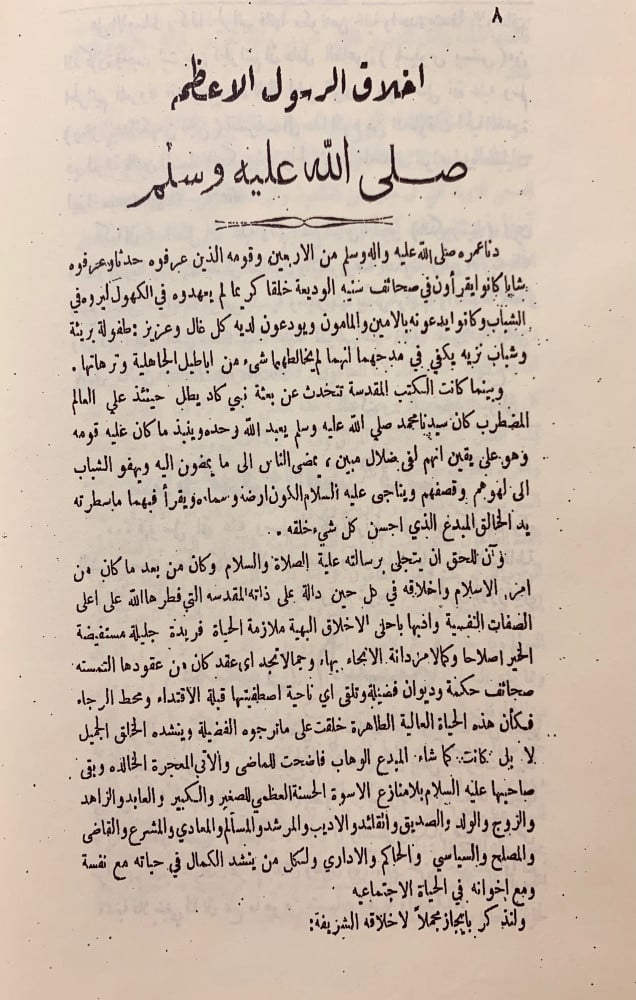 ٨
اخلاق الرسول الاعظم
صلى الله عليه وسلم
دنا عمره صلى الله عليه واله وسلم من الاربعين وقومه الذين عرفوه حدثا وعرفوه
شابا كانوا يقرأون في صحائف سنيه الوديعة خلقا كريما لم يعهدوه في الكهول ليروه في
الشباب وكانوا يدعونه بالامين والمامون ويودعون لديه كل غال وعزيز : طفولة بريئة
وشباب نزيه يكفي في مدحهما انهما لم يخالطهما شيء من اباطيل الجاهلية وترهاتها .
وبينما كانت الكتب المقدسة تتحدث عن بعثة نبي كاد يطل حينئذ علي العالم
المضطرب كان سيدنا محمد صلي الله عليه وسلم يعبد الله وحده وينبذ ما كان عليه قومه
وهو علي يقين انهم لفى ضلال مبين ، يمضى الناس الى ما يمضون اليه ويهفو الشباب
الى لهوهم وقصفهم ويناجى عليه السلام الكون ارضه وسماءه ويقرأ فيهما ما سطرته
يد الخالق المبدع الذي احسن كل شيء خلقه .
وآن للحق ان يتجلى برسالته علية الصلاة والسلام وكان من بعد ما كان من
امر الاسلام واخلاقه في كل حين دالة على ذاته المقدسه التي فطرها الله على اعلى
الصفات النفسية واغناها باحلى الاخلاق البهية ملازمة الحياة فريدة جليلة مستفيضة
الخير اصلاحا وكمالا مزدانة الانحاء بهاء وجمالا تجد اى عقد كان من عقودها التمسته
صحائف حكمة وديوان فضيلة وتلقى اي ناحية اصطفيتها قبلة الاقتداء ومحط الرجاء
فكأن هذه الحياة العالية الطاهرة خلقت على ما ترجوه الفضيلة وينشده الخلق الجميل
لا بل كانت كما شاء المبدع الوهاب فاضحت للماضى والآتى المعجرة الخالده وبقى
صاحبها عليه السلام بلا منازع الاسوة الحسنة العظمي للصغير والكبير والعابد والزاهد
والزوج والولد والصديق والقائد والاديب والمرشد والمسالم والمعادي والمشرع والقاضى
والمصلح والسياسي والحاكم والاداري ولكل من ينشد الكمال في حياته مع نفسة
ومع إخوانه في الحياة الاجتماعيه
ولنذكر بايجاز مجملاً لاخلاقه الشريفة: